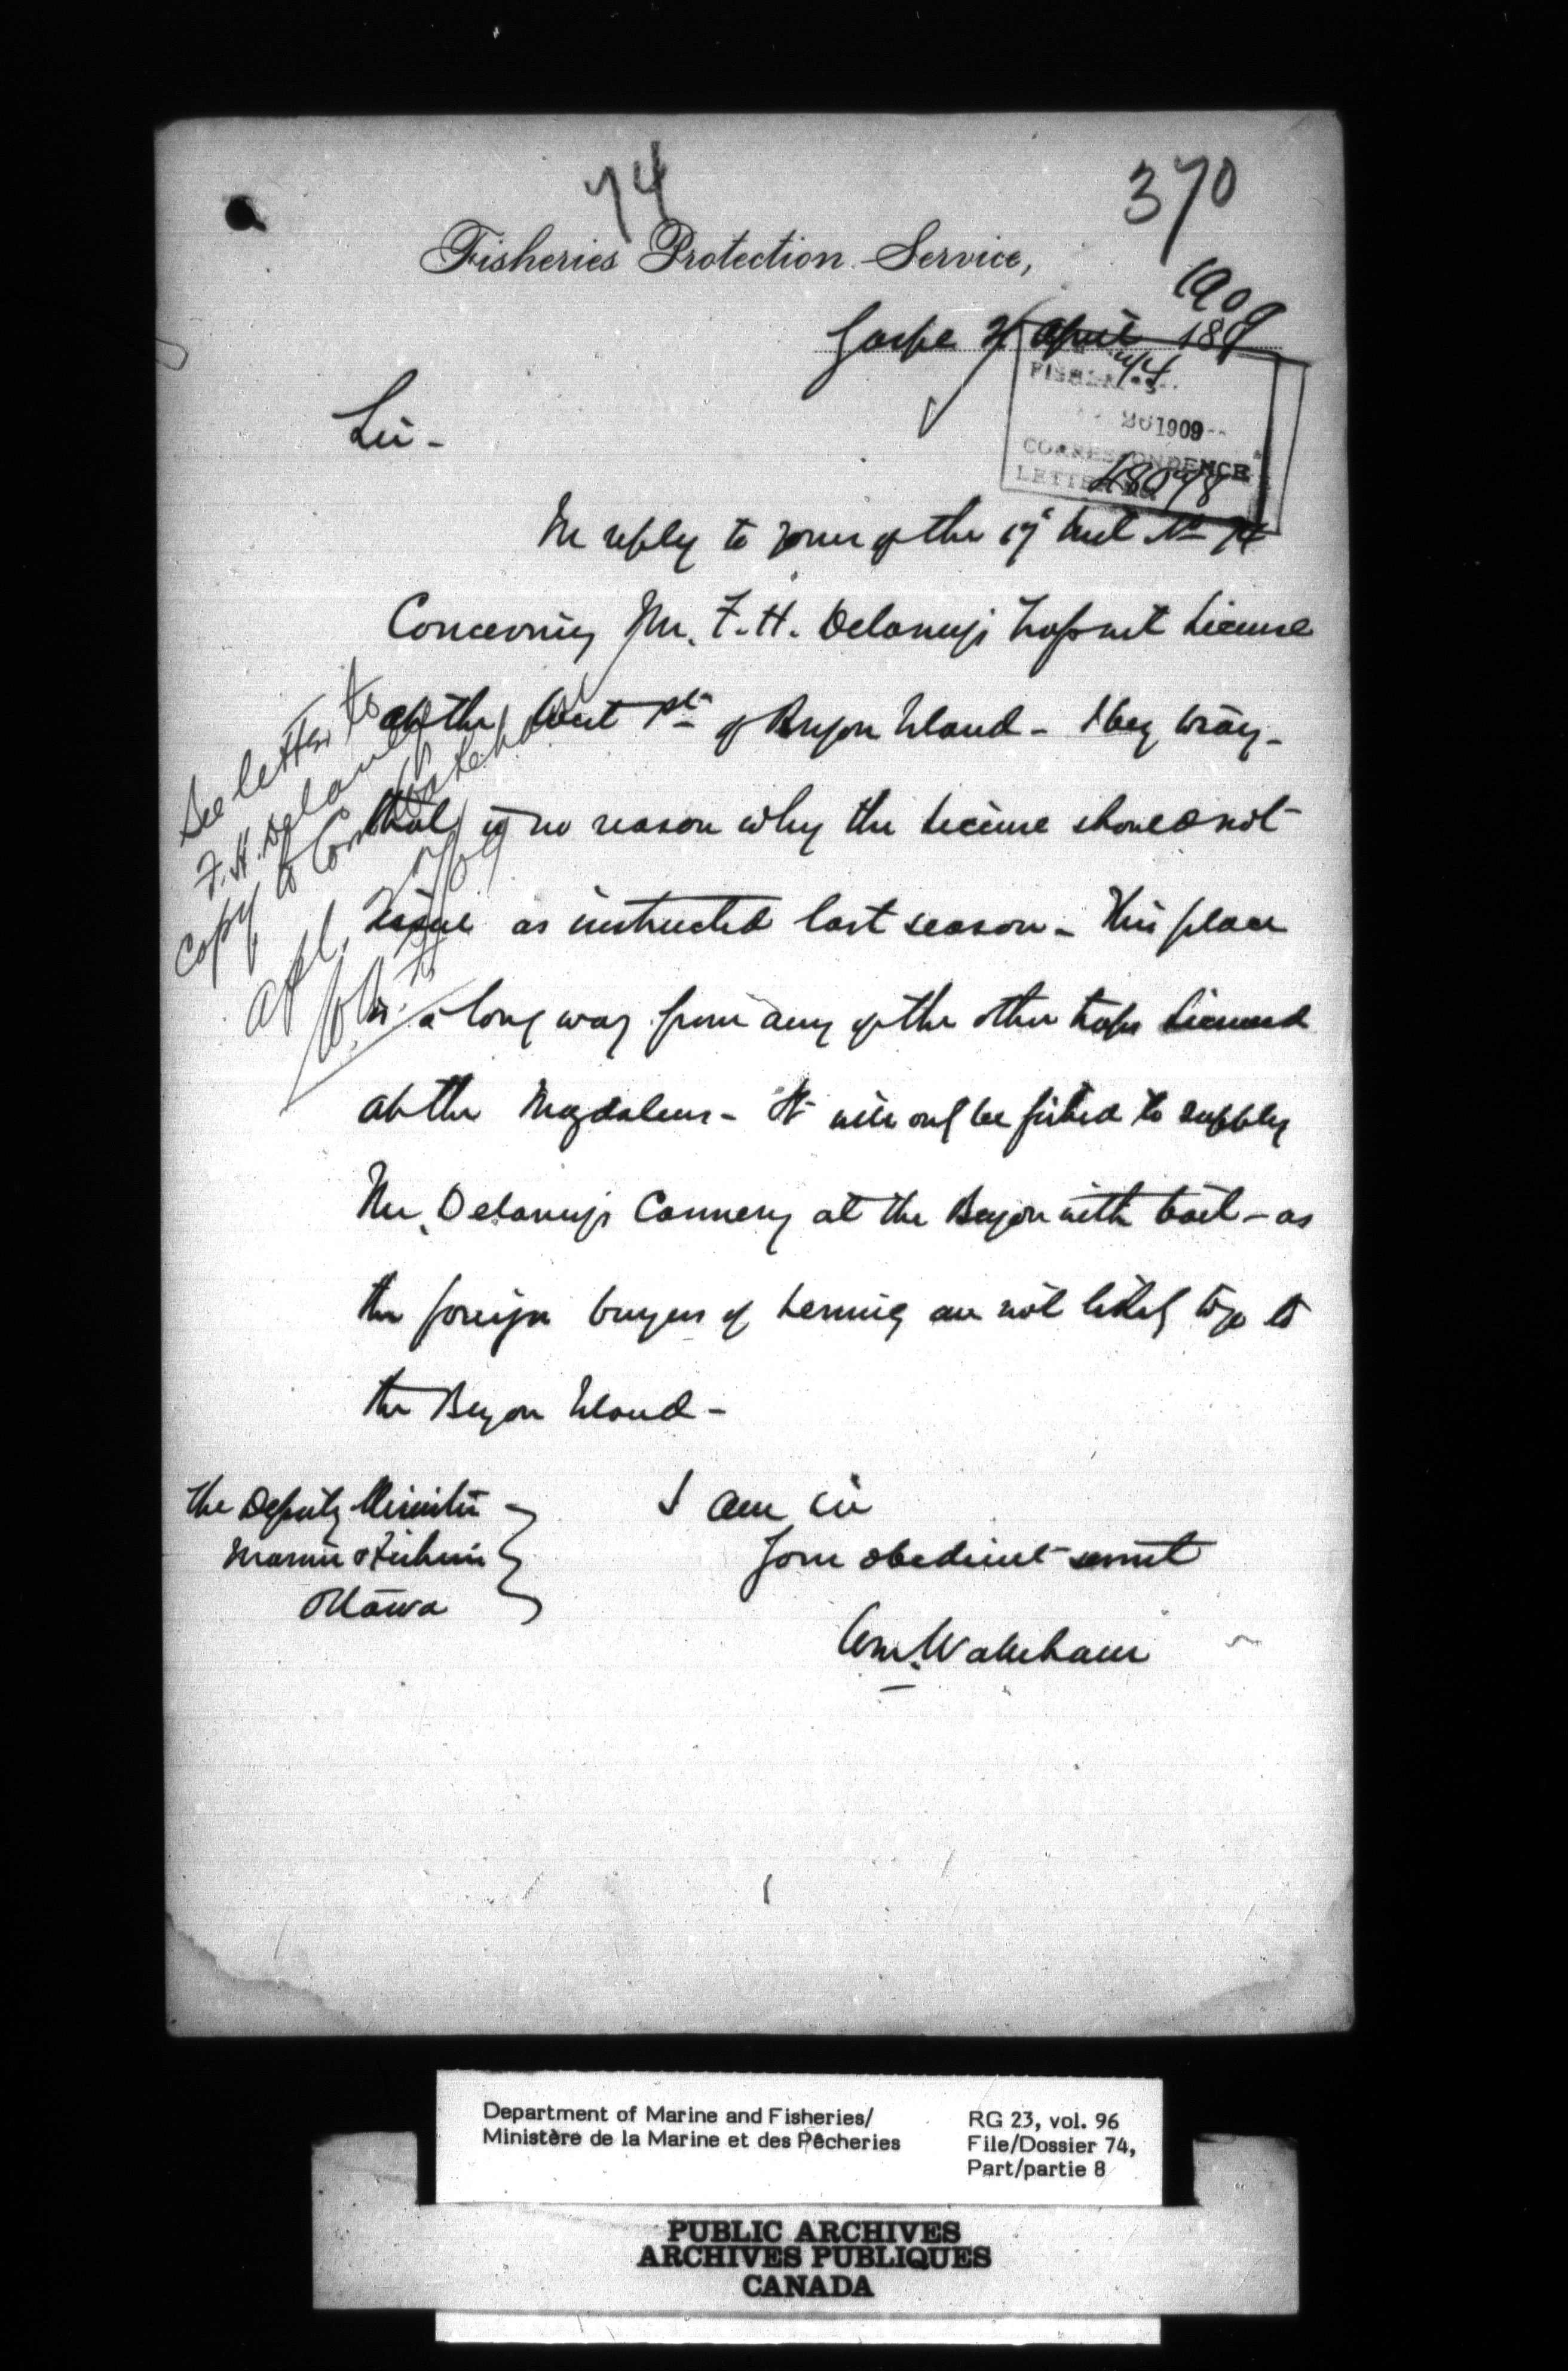 74
370
Fisheries Protection Service,
1909
Gaspe April 189
4/4
FISHERIES
20 1909
CORRESPONDENCE
LETTER No.
48098
Sir -
In reply to yours of the 17th Inst No 74
Concerning Mr. F. H. Delaney's trapnet License
at the West pt of Bryon Island - I beg to say -
that is no reason why the License should not
issue as instructed last season - This place
is a long way from any of the other traps Licensed
at the Magdalens - It will only be fished to supply
Mr. Delaney's Cannery at the Bryon with bait - as
the foreign buyers of herring are not likely to go to
the Bryon Island -
See letter to
F. H. Delaney
copy to Com Wakeham
Apl.
The Deputy Minister
Marine & Fisheries
Ottawa
I am sir
Your obedient servant
Wm. Wakeham
Department of Marine and Fisheries/
Ministère de la Marine et des Pêcheries
RG 23, vol. 96
File/Dossier 74,
Part/partie 8
PUBLIC ARCHIVES
ARCHIVES PUBLIQUES
CANADA